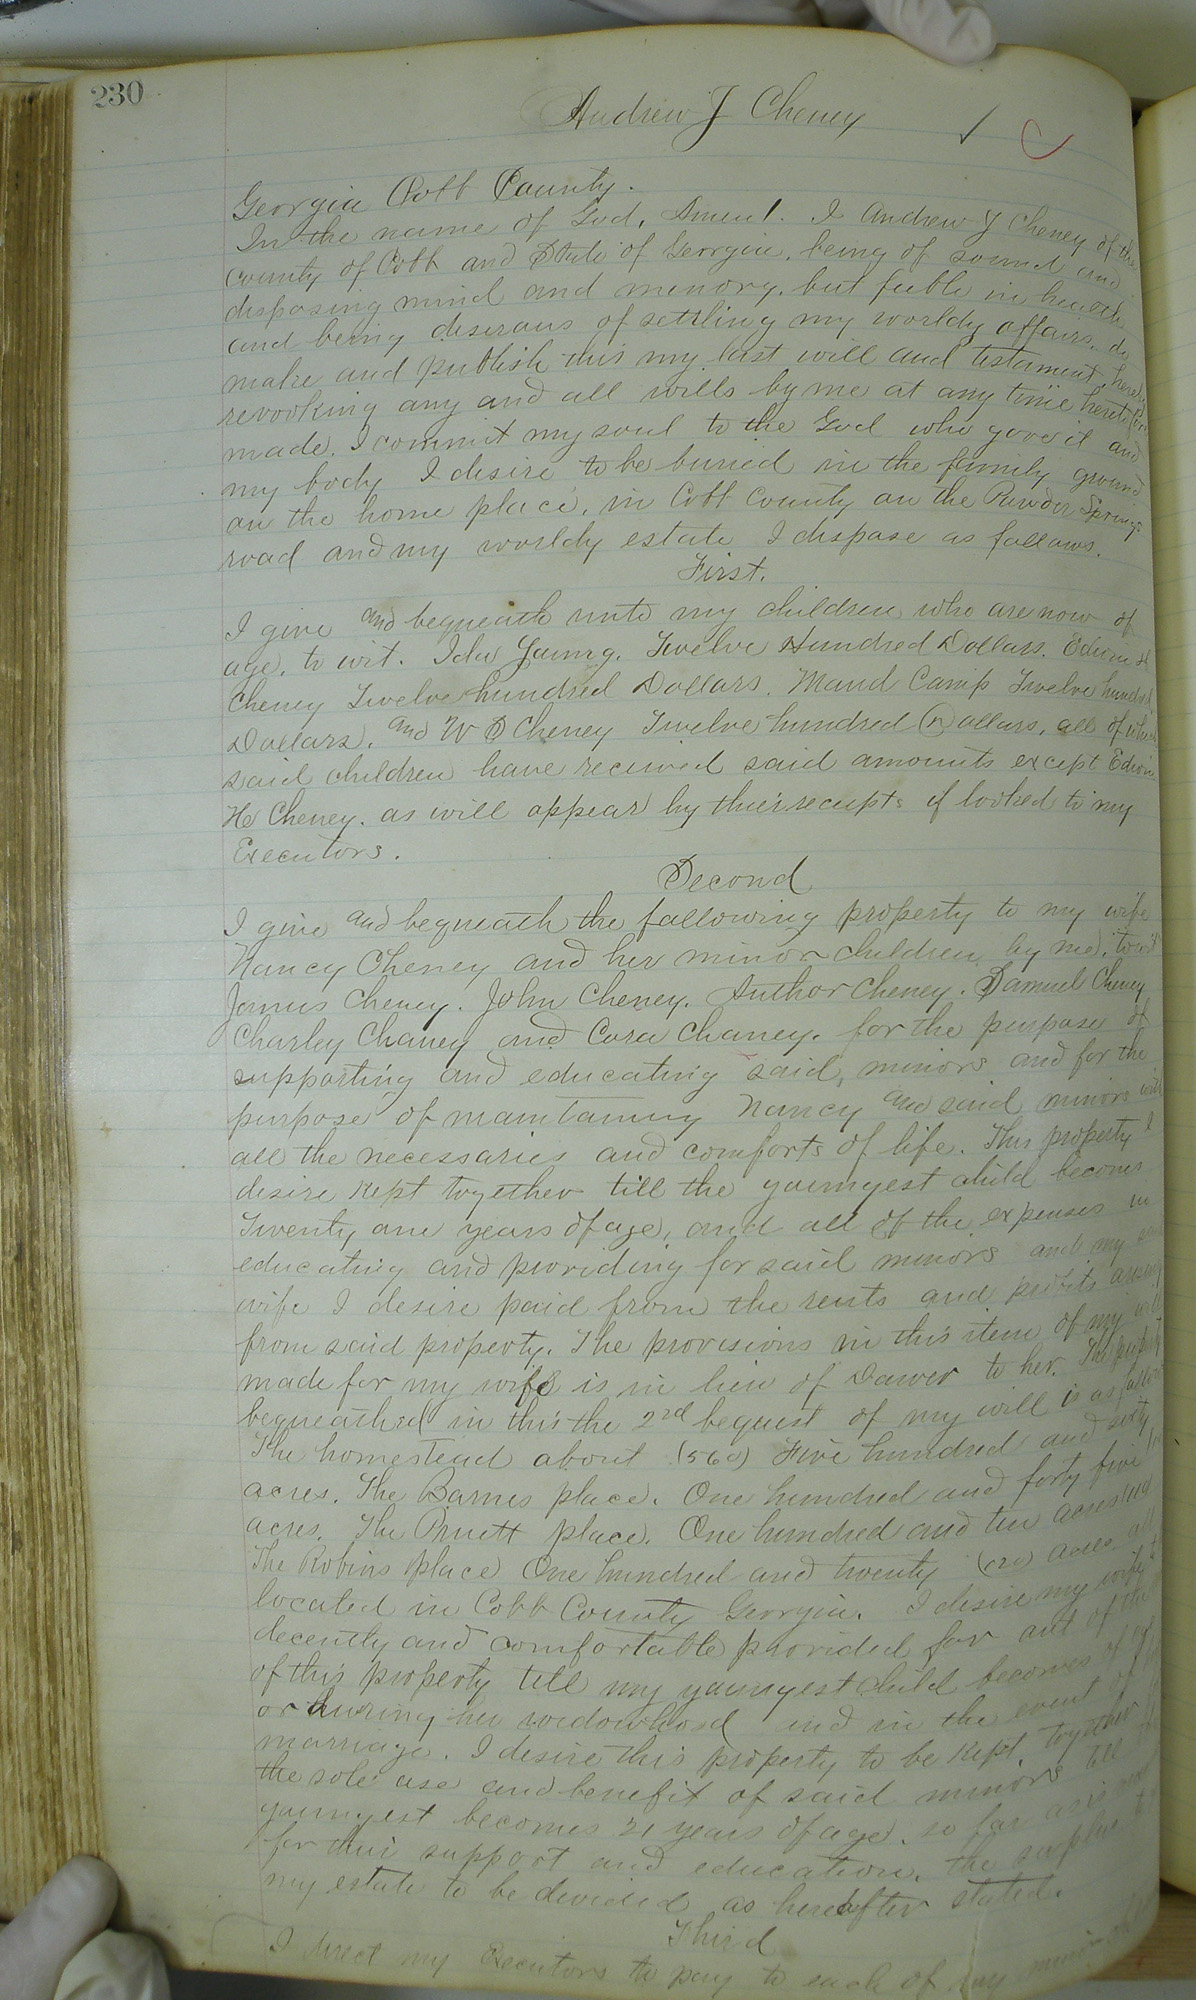 230
Andrew J Cheney
Georgia Cobb County.
In the name of God, Amen. I Andrew J Cheney of the
County of Cobb and State of Georgia, being of sound and
disposing mind and memory, but feeble in health
and being desirous of settling my worldy affairs, do
make and publish this my last will and testament, hereby
revooking any and all wills by me at any time heretofore
made. I commit my soul to the God who gave it and
my body I desire to be buried in the family ground
on the home place, in Cobb County on the Powder Springs
road and my worldy estate I dispose as follows.
First.
I give and bequeath unto my children who are now of
age, to wit. Ida Young, Twelve Hundred Dollars. Edwin H
Cheney Twelve hundred Dollars. Maud Camp Twelve hundred
Dollars, and W S Cheney Twelve hundred Dollars, all of which
said children have received said amounts except Edwin
H Cheney. as will appear by their receipts if looked to my
Executors.
Second
I give and bequeath the following property to my wife
Nancy Cheney and her minor children by me, towit
James Cheney. John Cheney. Author Cheney. Samuel Cheney
Charley Chaney and Cora Chaney. for the purpose of
supporting and educating said, minors and for the
purpose of maintaining Nancy and said minors with
all the necessaries and comforts of life. This property I
desire kept together till the youngest child becomes
Twenty one years of age, and all of the expenses in
educating and providing for said minors and my
wife I desire paid from the rents and profits arising
from said property. The provisions in this item of my will
made for my wife is in lieu of Dower to her. The property
bequeathed in this the 2nd bequest of my will is as follows
The homestead about (560) Five hundred and sixty
acres. The Barnes place. One hundred and forty five
acres. The Pruett place. One hundred and ten acres
The Robins place One hundred and twenty (120) acres all
located in Cobb County Georgia. I desire my wife
decently and comfortable provided for out of the
of this property till my youngest child becomes of age
or during her widowhood and in the event of
marriage. I desire this property to be kept together
the sole use and benefit of said minors till the
youngest becomes 21 years of age, so far as is
for their support and education, the surplus
my estate to be devided as hereafter stated.
Third
I direct my Executors to pay to each of my minor